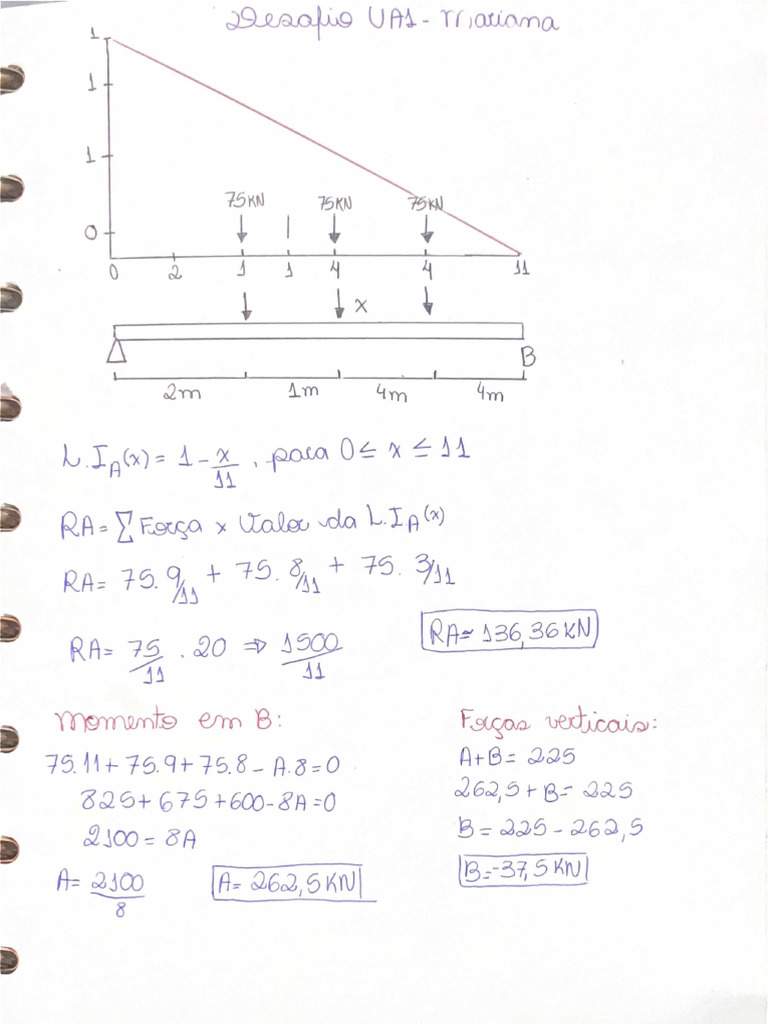 Desafio UA1 - Mariana
1
1
1
0
75KN 75KN 75KN
0 2 1 1 4 4 11
x
B
2m 1m 4m 4m
L.I_A(x) = 1 - x/11 , para 0 ≤ x ≤ 11
RA = ∑ Força x Valor da L.I_A(x)
RA = 75. 9/11 + 75. 8/11 + 75. 3/11
RA = 75/11 . 20 ⇒ 1500/11
RA ≃ 136,36 KN
Momento em B:
75.11 + 75.9 + 75.8 - A.8 = 0
825 + 675 + 600 - 8A = 0
2100 = 8A
A = 2100/8
A = 262,5 KN
Forças verticais:
A+B = 225
262,5 + B = 225
B = 225 - 262,5
B = -37,5 KN